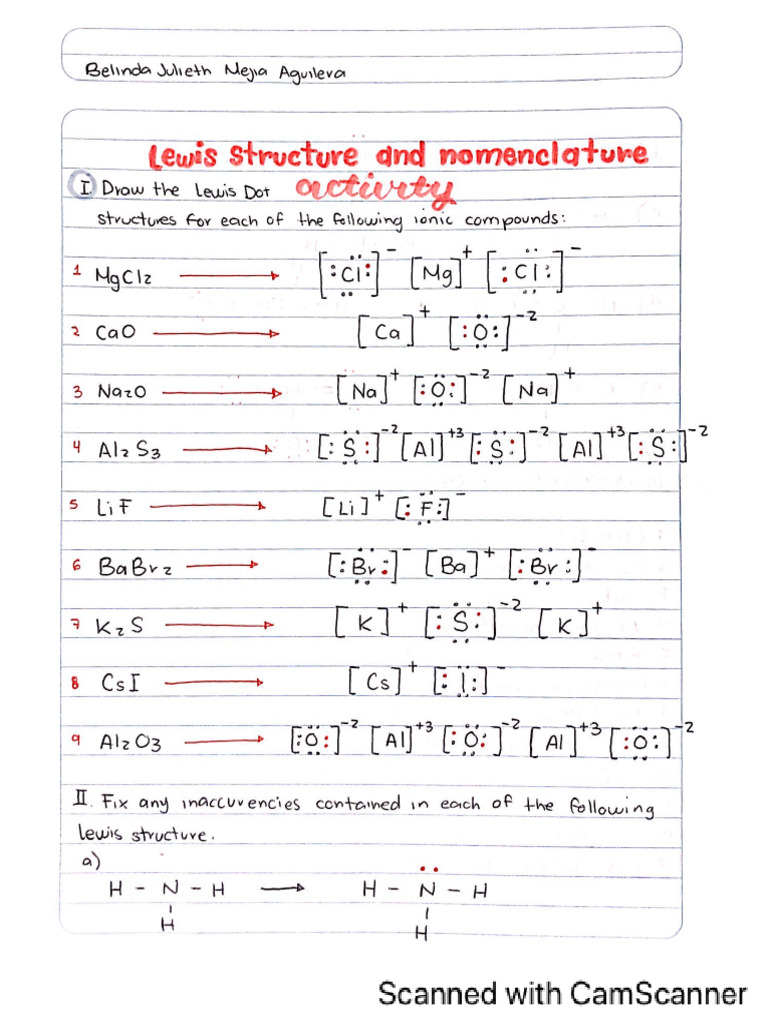 Belinda Julieth Mejia Aguileva
Lewis structure and nomenclature
I Draw the Lewis Dot activity
structures for each of the following ionic compounds:
1 MgCl2 → [:Cl:]⁻ [Mg]⁺ [:Cl:]⁻
2 CaO → [Ca]⁺ [:O:]⁻²
3 Na2O → [Na]⁺ [:O:]⁻² [Na]⁺
4 Al2S3 → [:S:]⁻² [Al]⁺³ [:S:]⁻² [Al]⁺³ [:S:]⁻²
5 LiF → [Li]⁺ [:F:]⁻
6 BaBr2 → [:Br:]⁻ [Ba]⁺ [:Br:]⁻
7 K2S → [K]⁺ [:S:]⁻² [K]⁺
8 CsI → [Cs]⁺ [:I:]⁻
9 Al2O3 → [:O:]⁻² [Al]⁺³ [:O:]⁻² [Al]⁺³ [:O:]⁻²
II. Fix any inaccuvencies contained in each of the following
lewis structure.
a)
H - N - H → H - N - H
H H
Scanned with CamScanner